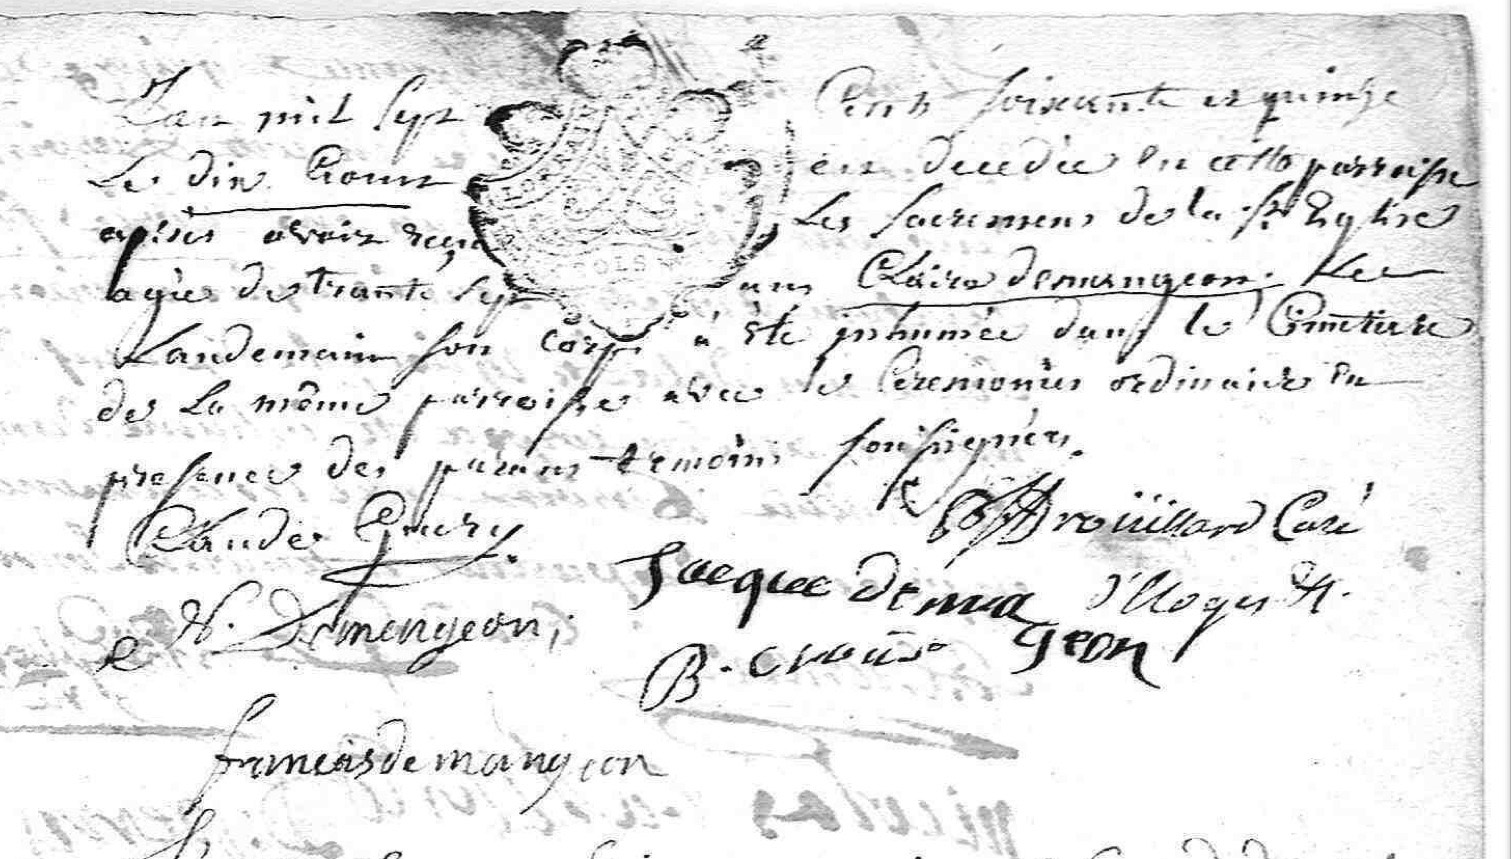 L'an mil sept Cents soixante et quinze
Le dix Aoust est decedée en cette parroisse
après avoir reçu Les sacremens de la ste Eglise
agée de trante sept ans Claire demangeon. Le
Landemain son corps à été inhumée dans le Cimetiere
de La même parroisse avec le Ceremonies ordinaire en
presence des parans temoins soussignés.
Claude Drouillard Curé
N. Demengeon
Jacque demangeon d'Uloges
B.
francois demangeon